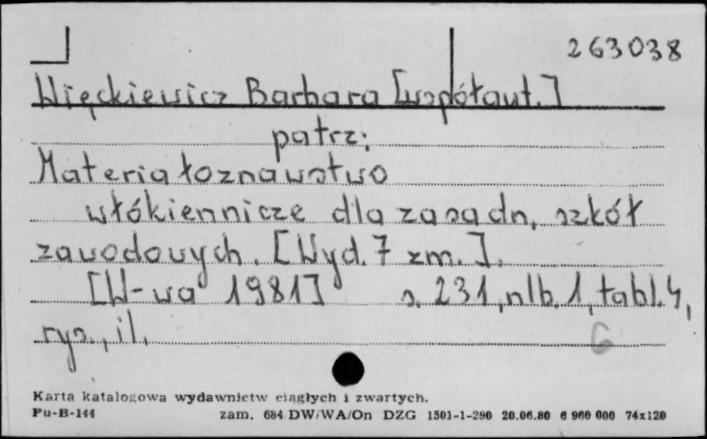 263038
Więckiewicz Barbara [współaut.]
patrz:
Materiałoznawstwo
włókiennicze dla zasadn. szkół
zawodowych. [Wyd. 7 zm.].
[W-wa 1981] s. 231, nlb. 1, tabl. 4,
rys., il.
6
Karta katalogowa wydawnictw ciągłych i zwartych.
Pu-B-144 zam. 684 DW/WA/On DZG 1501-1-290 20.06.80 6 960 000 74x120